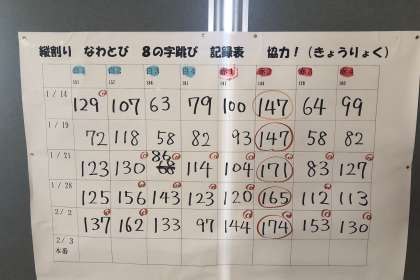 縦割り なわとび 8の字跳び 記録表 協力!(きょうりょく)
白1 白2 白3 白4 赤1 赤2 赤3 赤4
1/14 129 107 63 79 100 147 64 99
1/19 72 118 58 82 93 147 58 82
1/21 123 130 86 114 104 171 83 127
1/28 125 156 143 123 120 165 112 113
2/2 137 162 133 97 144 174 153 130
2/3
本番